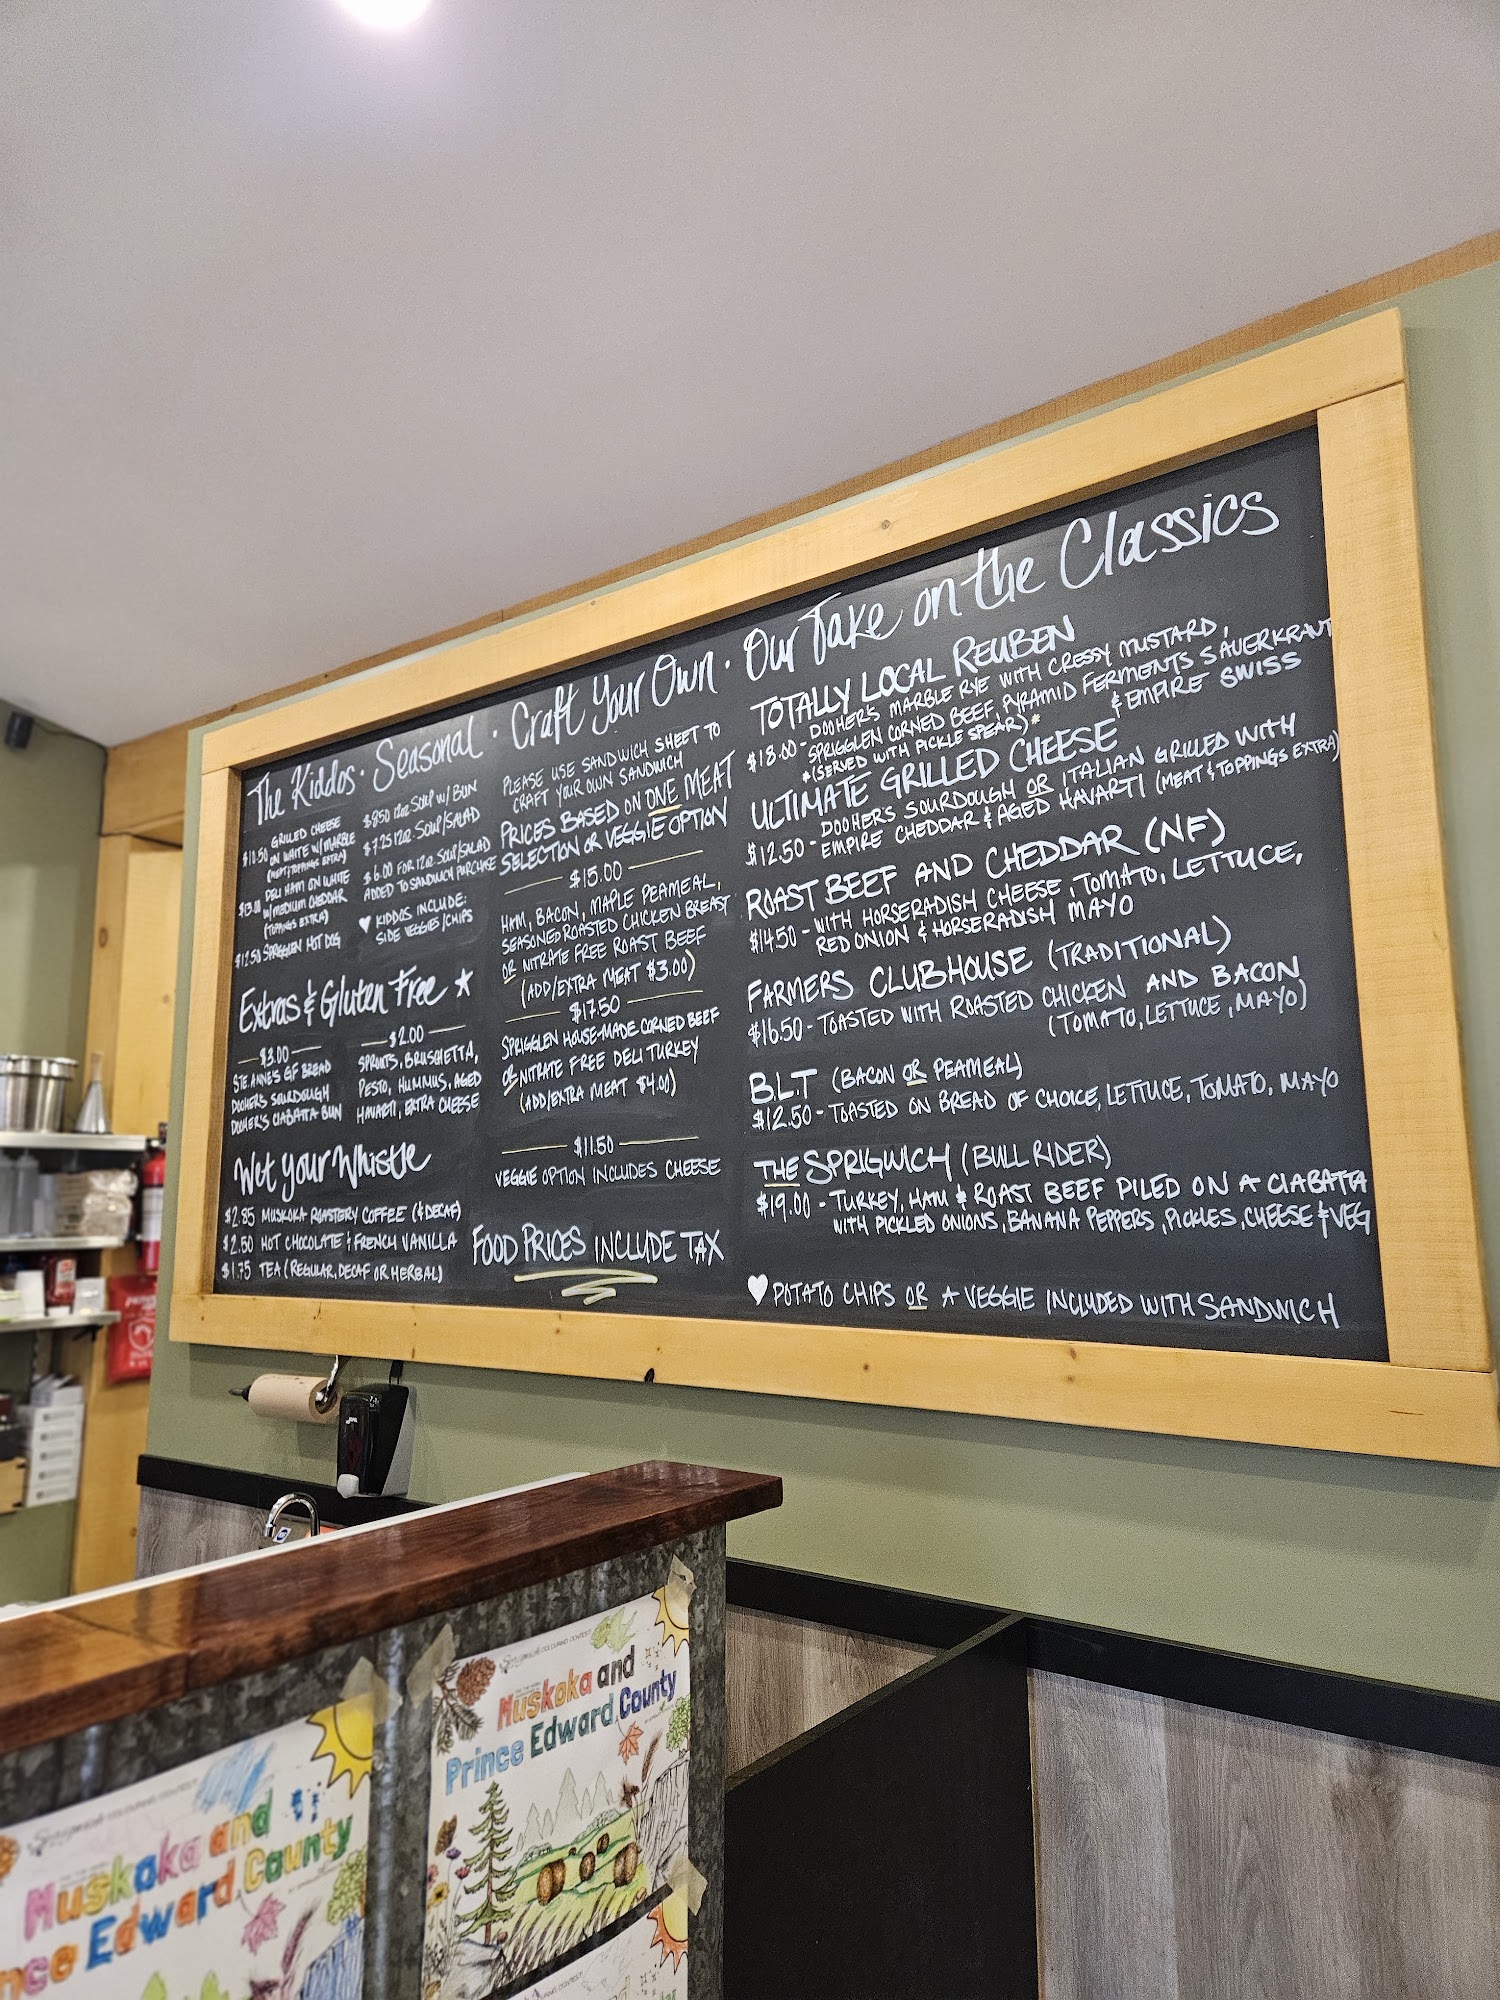 The Kiddos · Seasonal · Craft Your Own · Our Take on the Classics
$10.50 GRILLED CHEESE
ON WHITE W/ MARBLE
(MEAT/TOPPINGS EXTRA)
DELI HAM ON WHITE
W/MEDIUM CHEDDAR
(TOPPINGS EXTRA)
$12.50 SPRIGGLEN HOT DOG
$8.50 12oz SOUP W/ BUN
$7.25 12oz SOUP/SALAD
$6.00 FOR 12oz SOUP/SALAD
ADDED TO SANDWICH PURCHASE
♥ KIDDOS INCLUDE:
SIDE VEGGIES/CHIPS
Extras & Gluten Free ★
$3.00
STE. ANNE'S GF BREAD
DOOHER'S SOURDOUGH
DOOHER'S CIABATTA BUN
$2.00
SPROUTS, BRUSCHETTA,
PESTO, HUMMUS, AGED
HAVARTI, EXTRA CHEESE
Wet your Whistle
$2.85 MUSKOKA ROASTERY COFFEE (& DECAF)
$2.50 HOT CHOCOLATE & FRENCH VANILLA
$1.75 TEA (REGULAR, DECAF OR HERBAL)
PLEASE USE SANDWICH SHEET TO
CRAFT YOUR OWN SANDWICH
PRICES BASED ON ONE MEAT
SELECTION OR VEGGIE OPTION
$15.00
HAM, BACON, MAPLE PEAMEAL,
SEASONED ROASTED CHICKEN BREAST
OR NITRATE FREE ROAST BEEF
(ADD/EXTRA MEAT $3.00)
$17.50
SPRIGGLEN HOUSE-MADE CORNED BEEF
OR NITRATE FREE DELI TURKEY
(ADD/EXTRA MEAT $4.00)
$11.50
VEGGIE OPTION INCLUDES CHEESE
FOOD PRICES INCLUDE TAX
TOTALLY LOCAL REUBEN
$18.00 - DOOHER'S MARBLE RYE WITH CRESSY MUSTARD,
SPRIGGLEN CORNED BEEF, PYRAMID FERMENTS SAUERKRAUT
*(SERVED WITH PICKLE SPEAR)* & EMPIRE SWISS
ULTIMATE GRILLED CHEESE
$12.50 - DOOHER'S SOURDOUGH OR ITALIAN GRILLED WITH
EMPIRE CHEDDAR & AGED HAVARTI (MEAT & TOPPINGS EXTRA)
ROAST BEEF AND CHEDDAR (NF)
$14.50 - WITH HORSERADISH CHEESE, TOMATO, LETTUCE,
RED ONION & HORSERADISH MAYO
FARMERS CLUBHOUSE (TRADITIONAL)
$16.50 - TOASTED WITH ROASTED CHICKEN AND BACON
(TOMATO, LETTUCE, MAYO)
B.L.T (BACON OR PEAMEAL)
$12.50 - TOASTED ON BREAD OF CHOICE, LETTUCE, TOMATO, MAYO
THE SPRIGWICH (BULL RIDER)
$19.00 - TURKEY, HAM & ROAST BEEF PILED ON A CIABATTA
WITH PICKLED ONIONS, BANANA PEPPERS, PICKLES, CHEESE & VEG
♥ POTATO CHIPS OR A VEGGIE INCLUDED WITH SANDWICH
COLOURING CONTEST
Muskoka and
Prince Edward County
COLOURING CONTEST
Muskoka and
nce Edward County